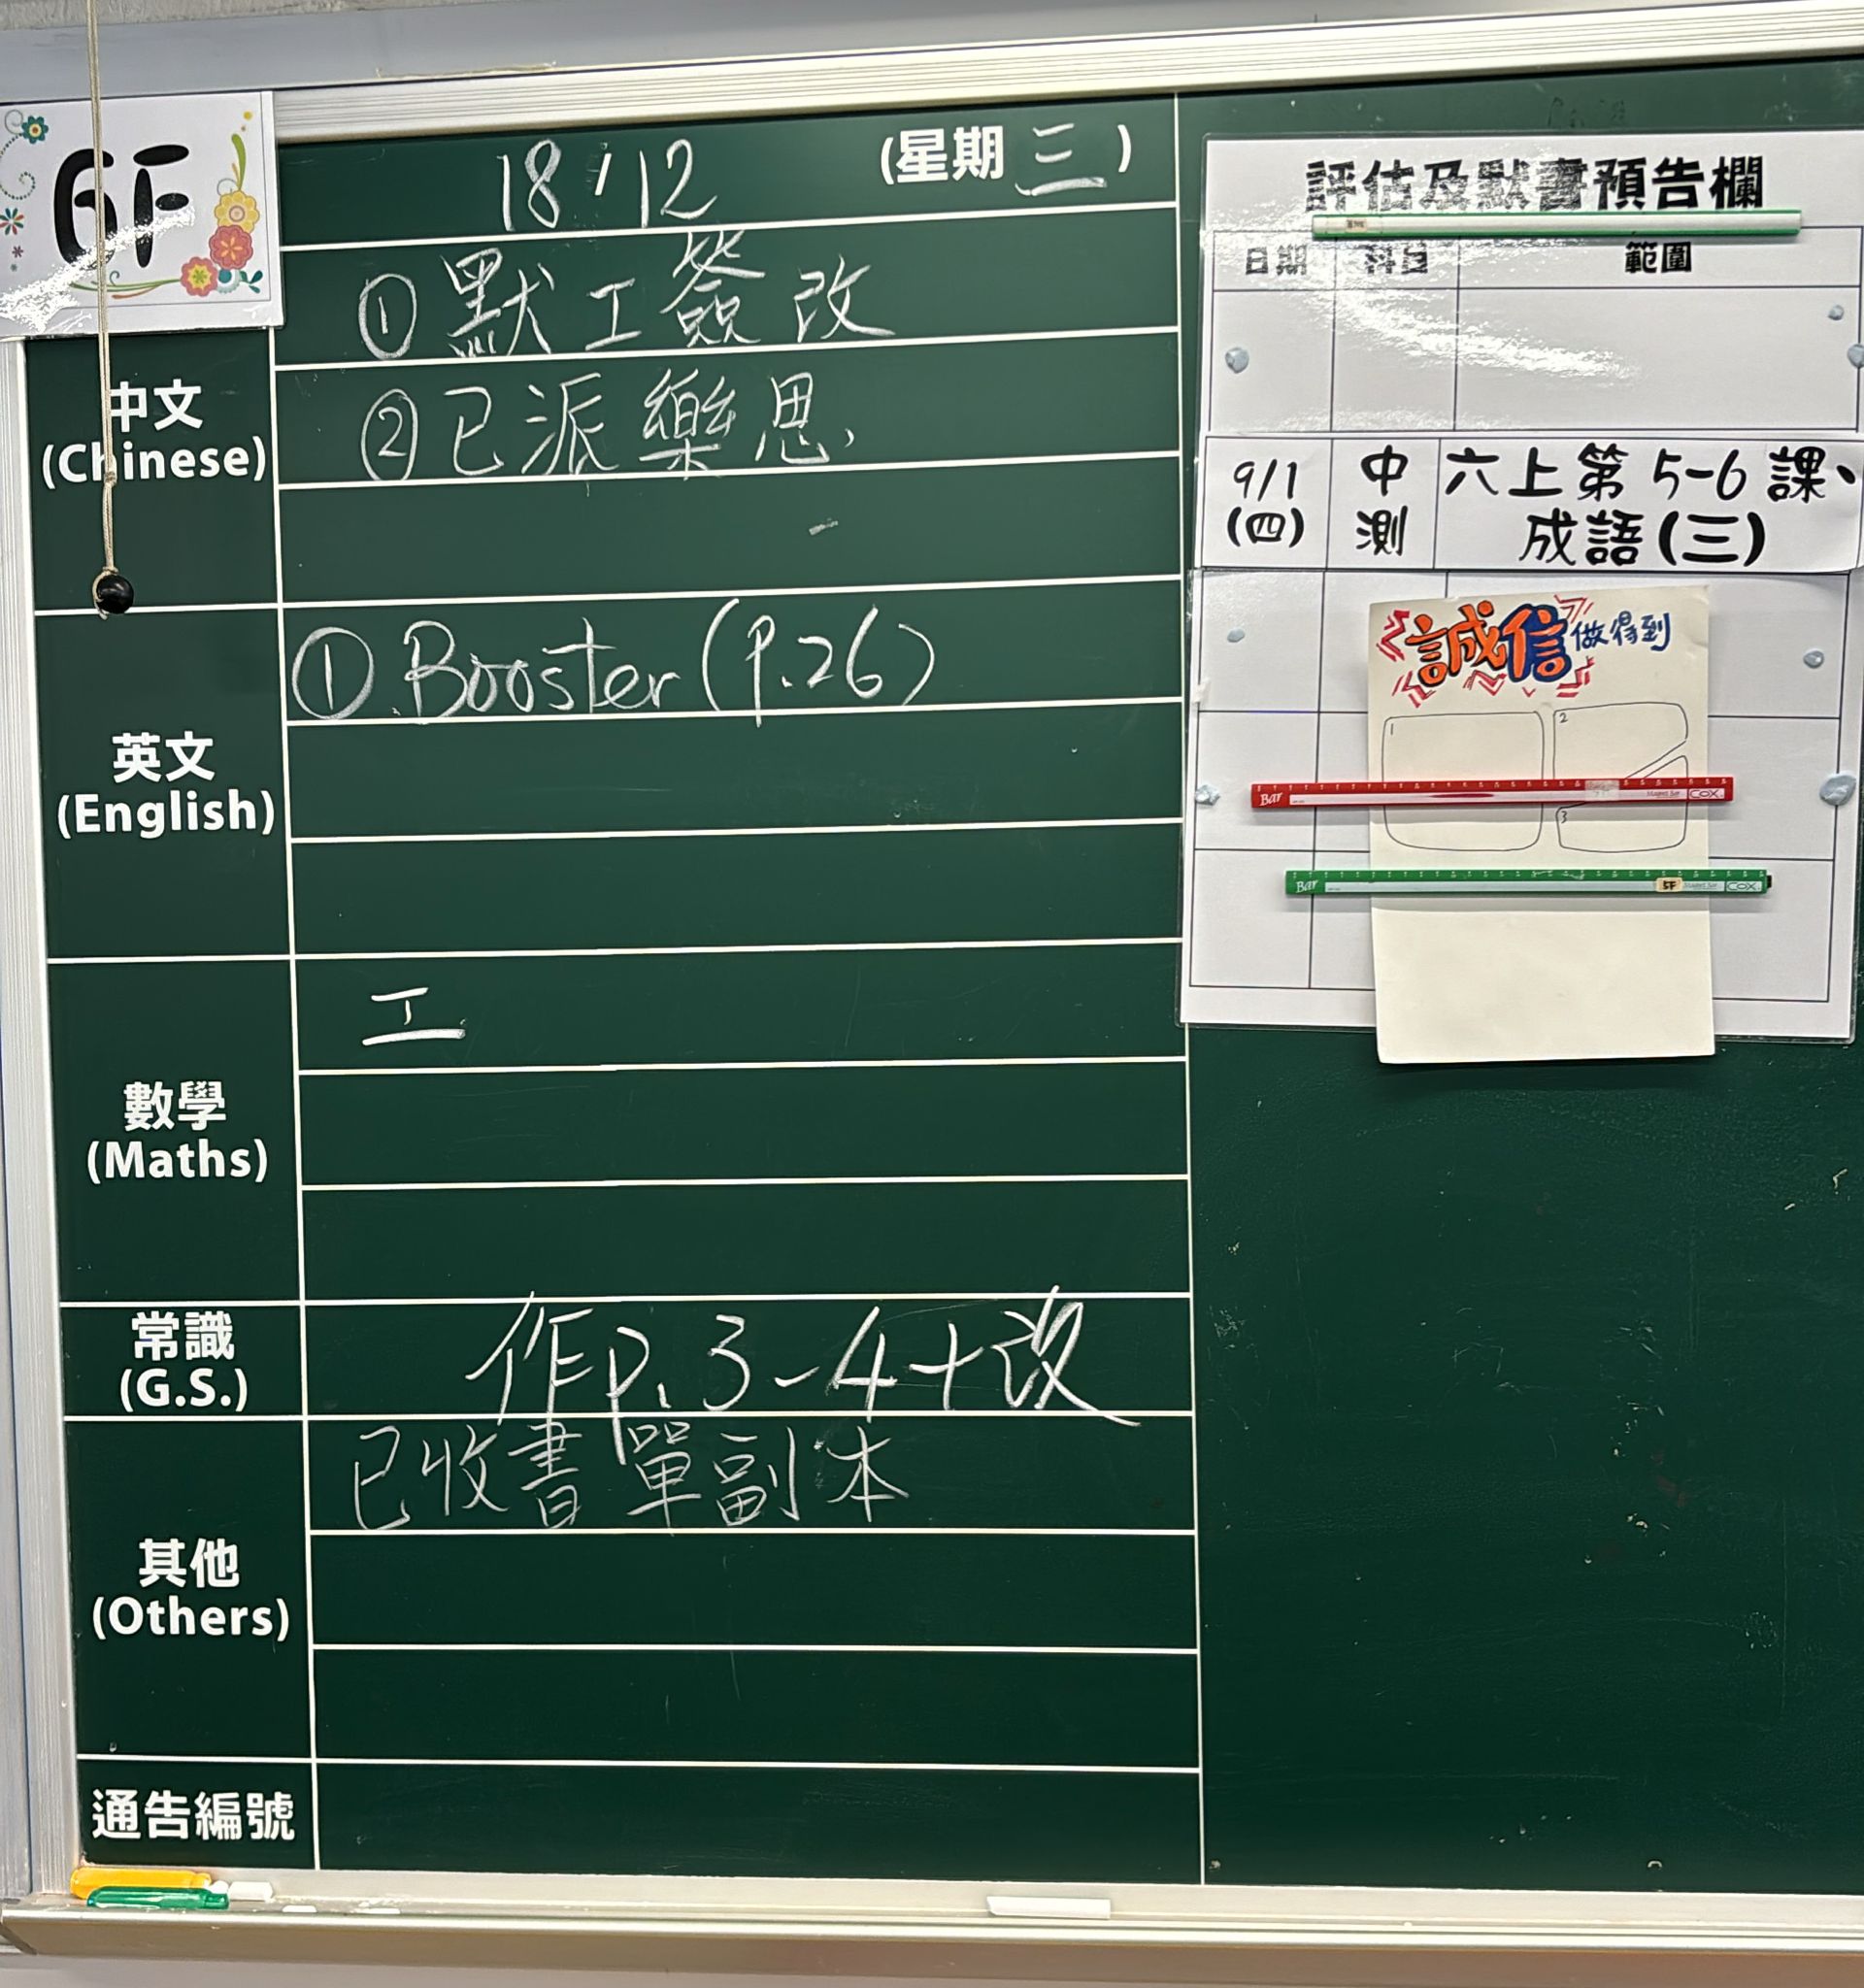 6F
18/12 (星期三)
中文
(Chinese)
①默工簽改
②已派樂思
英文
(English)
① Booster (P.26)
數學
(Maths)
工
常識
(G.S.)
作P.3-4+改
其他
(Others)
已收書單副本
通告編號
評估及默書預告欄
日期 科目 範圍
9/1 中 六上第5-6課、
(四) 測 成語(三)
誠信做得到
1
2
3
Bar COX
Bar 5F COX